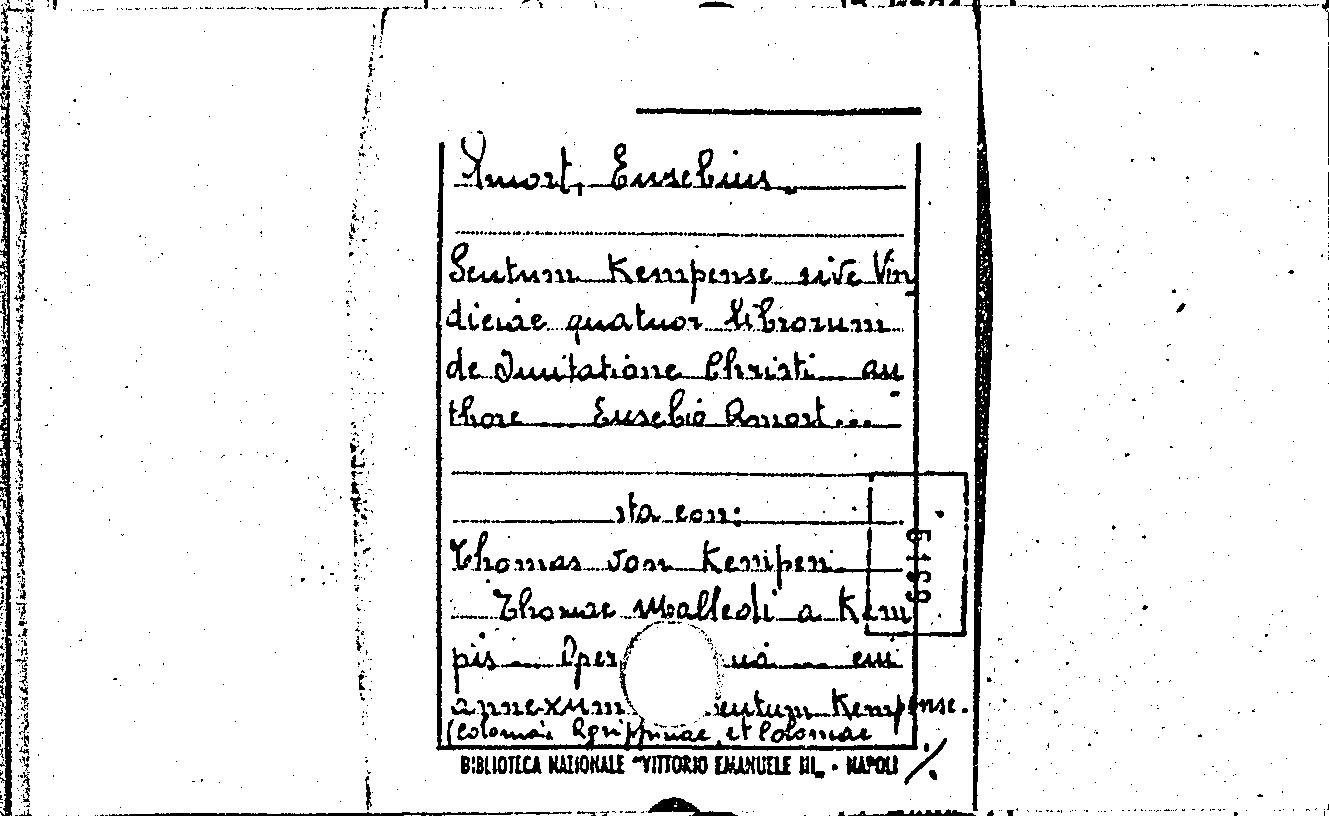 Amort, Eusebius.
Scutum Kempense sive Vin
diciae quatuor librorum
de Imitatione Christi au
thore Eusebio Amort...
sta con:
Thomas von Kempen
Thomae Malleoli a Kem
pis Oper
annexum cutum Kempense.
(Coloniae Agrippinae, et Coloniae
BIBLIOTECA NAZIONALE "VITTORIO EMANUELE III" - NAPOLI